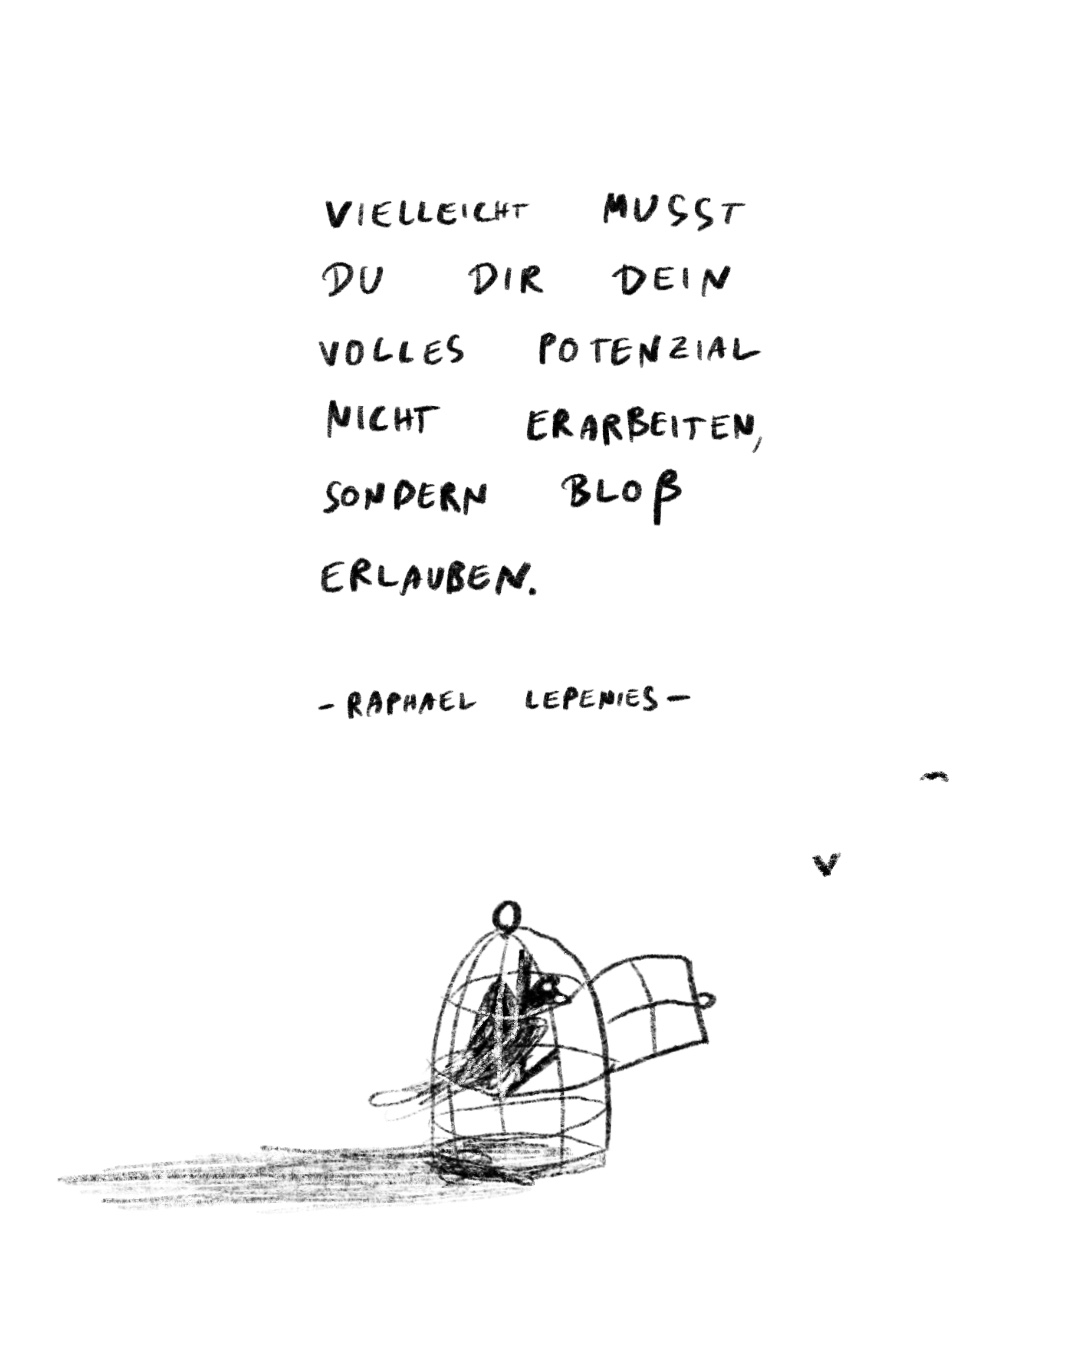 VIELLEICHT MUSST
DU DIR DEIN
VOLLES POTENZIAL
NICHT ERARBEITEN,
SONDERN BLOß
ERLAUBEN.
- RAPHAEL LEPENIES -